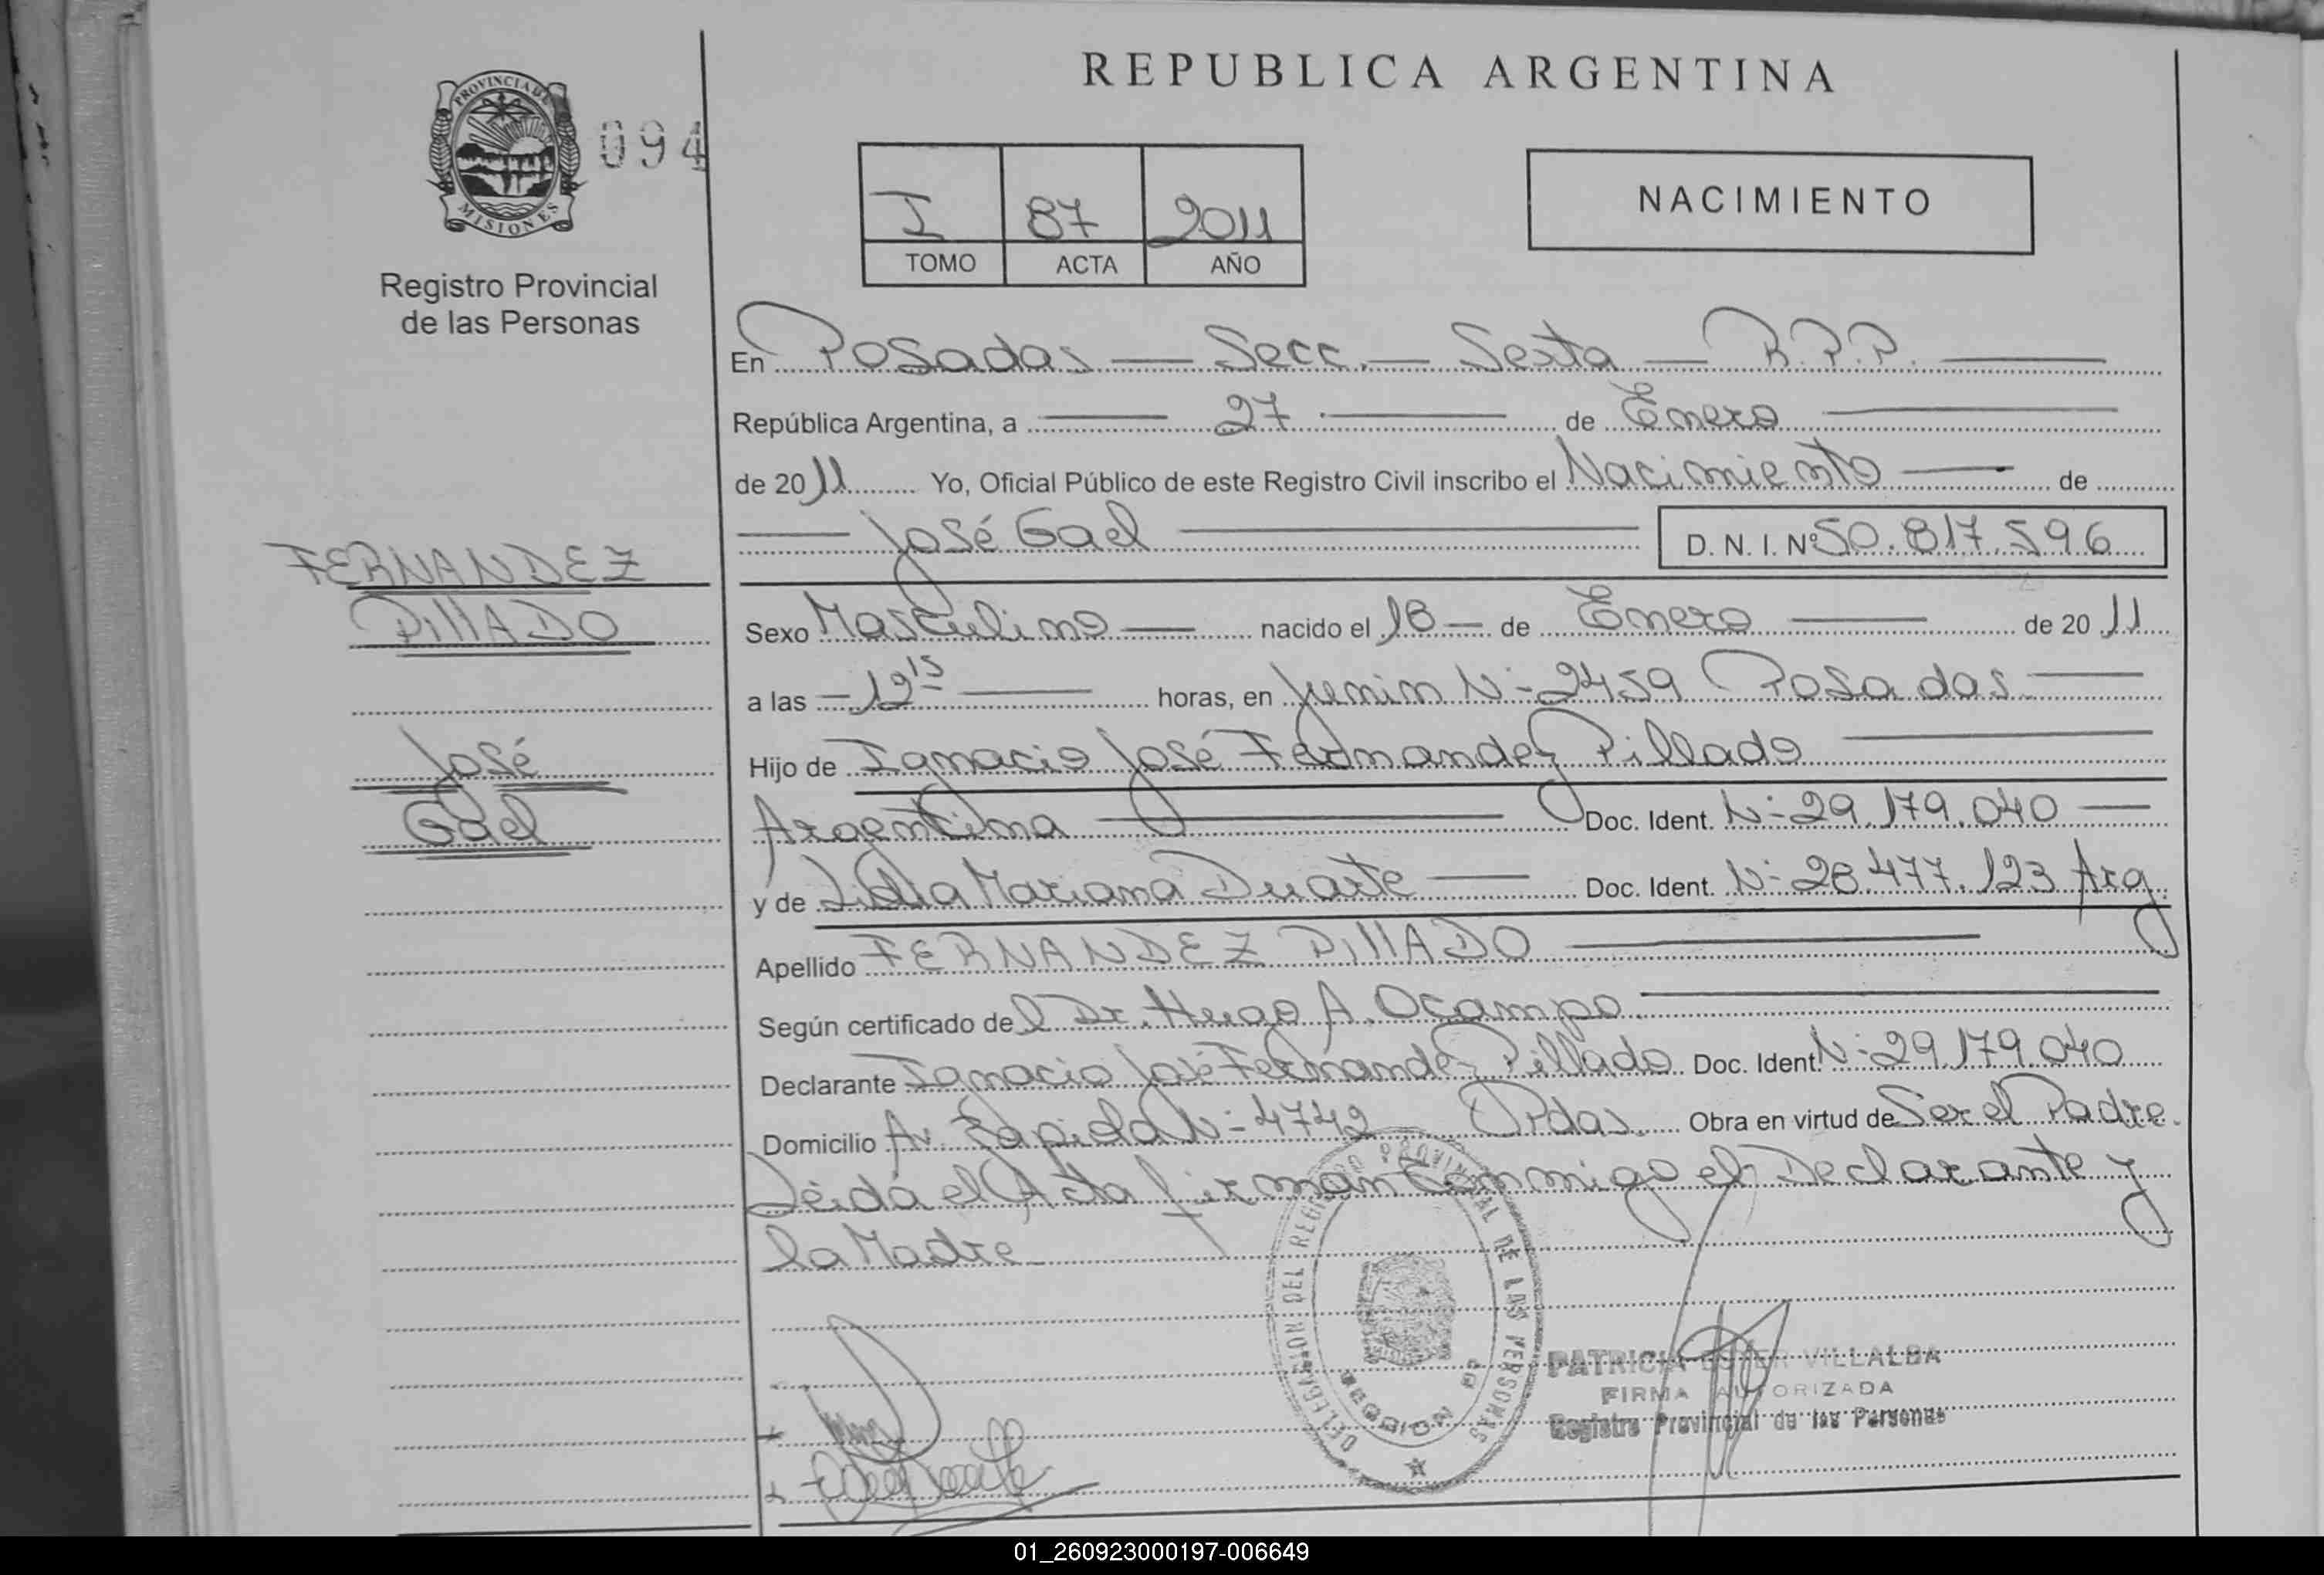 REPUBLICA ARGENTINA
PROVINCIA DE MISIONES
094
Registro Provincial
de las Personas
I 87 2011
TOMO ACTA AÑO
NACIMIENTO
En Posadas — Secc. — Sexta — R.P.P. —
República Argentina, a — 27 — de Enero —
de 2011 Yo, Oficial Público de este Registro Civil inscribo el Nacimiento — de
— José Gael —
D. N. I. Nº 50.817.596
FERNANDEZ
PillADO
José
Gael
Sexo Masculino — nacido el 18 — de Enero — de 2011
a las — 12 15 — horas, en Junin Nº 2459 Posadas —
Hijo de Ignacio José Fernandez Pillado —
Argentina — Doc. Ident. Nº 29.179.040 —
y de Lidia Mariana Duarte — Doc. Ident. Nº 28.477.123 Arg.
Apellido FERNANDEZ PillADO —
Según certificado del Dr. Hugo A. Ocampo. —
Declarante Ignacio José Fernandez Pillado Doc. Ident. Nº 29.179.040
Domicilio Av. Nº 4742 Pdas. Obra en virtud de Ser el Padre.
Leida el Acta firman conmigo el Declarante y
la Madre
DELEGACION DEL REGISTRO PROVINCIAL DE LAS PERSONAS
PATRICIA ESTER VILLALBA
FIRMA AUTORIZADA
Registro Provincial de las Personas
01_260923000197-006649